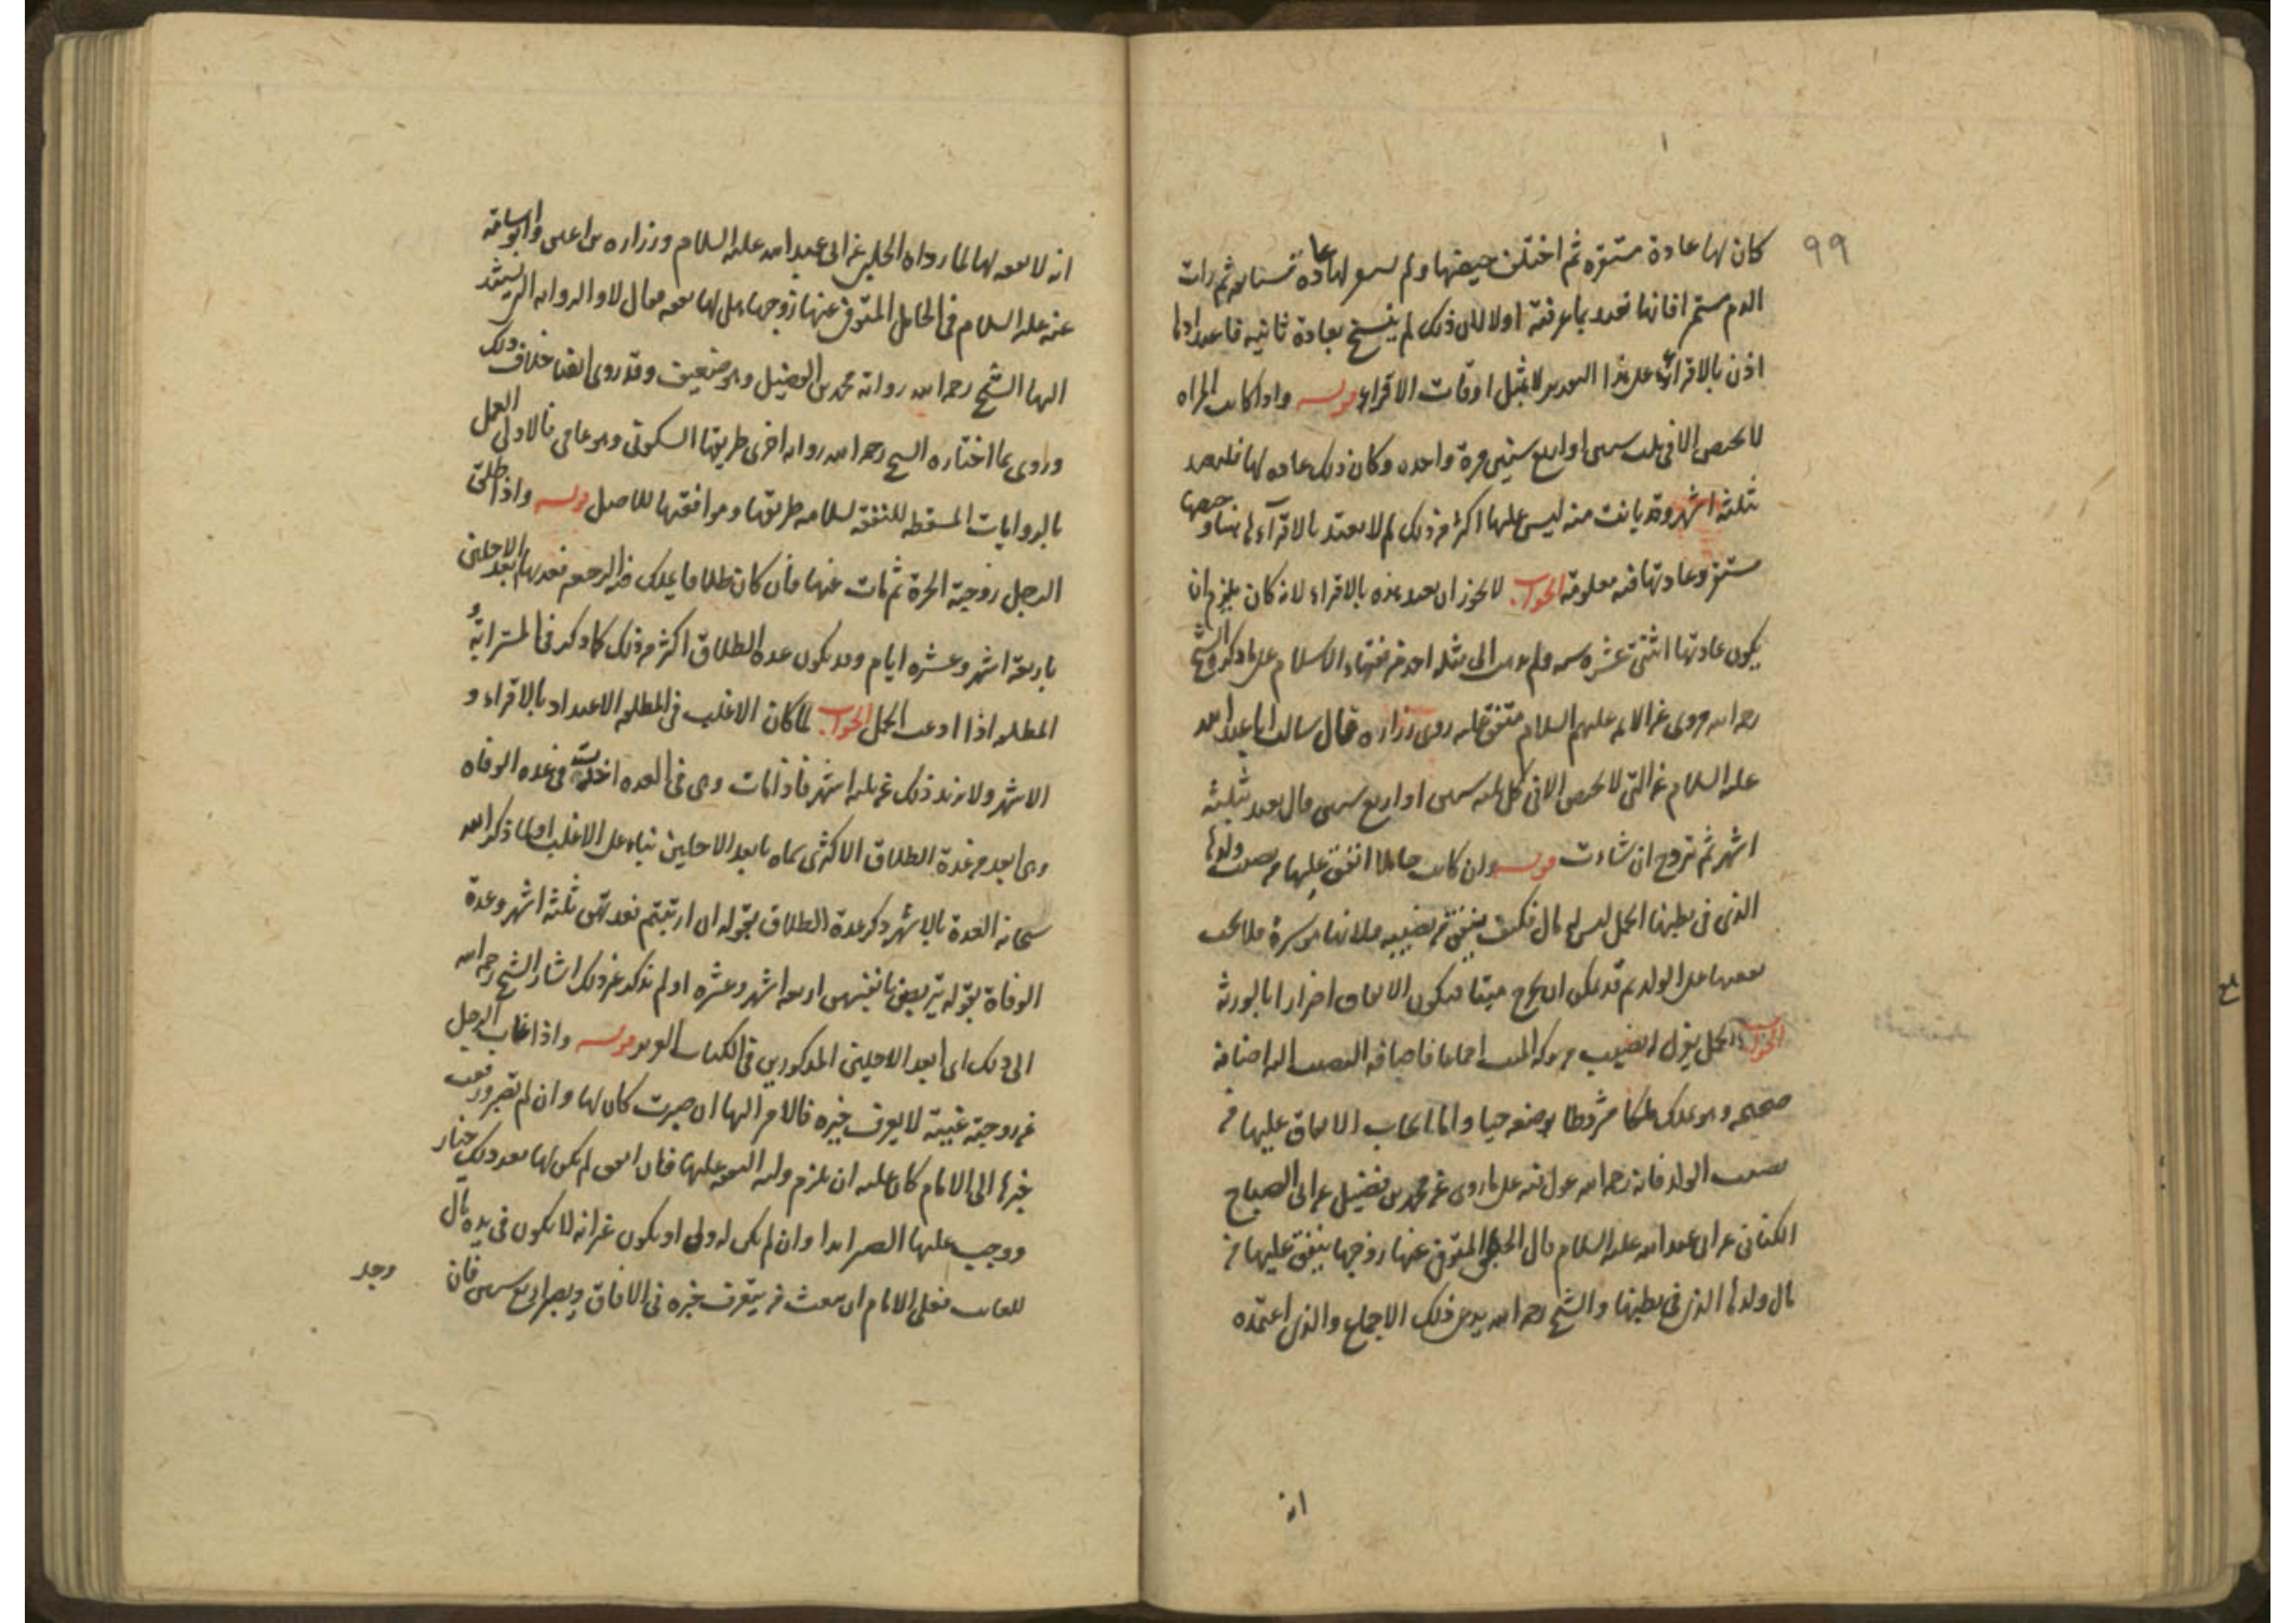 ٩٩
كان لها عادة مستقره ثم اختلف حيضها ولم لها عادة ثم رات
الدم مستمرا فانها تعتد بما عرفته اولا لان ذلك لم ينسخ بعادة ثانيه
اذن بالاقراء على هذا لا بمثل اوقات الاقراء قوله واذا كانت المراه
لا تحيض الا في ثلث سنين او اربع سنين مرة واحده وكان ذلك عاده لها فلتعتد
ثلثة اشهر وقد بانت منه ليس عليها اكثر من ذلك لم لا تعتد بالاقراء هنا وحيضها
مستقر وعادتها فيه معلومة الجواب لا يجوز ان تعتد هذه بالاقراء لانه كان يلزم ان
يكون عادتها اثنتى عشره سنه ولم يذهب الى مثله احد من فقهاء الاسلام على ما ذكره الشيخ
رحمه الله مروى عن الائمه عليهم السلام متفق عليه روى زراره قال سالت ابا عبد الله
عليه السلام عن التى لا تحيض الا فى كل ثلثه سنين او اربع سنين قال تعتد بثلثة
اشهر ثم تتزوج ان شاءت قوله وان كانت حاملا انفق عليها من نصيب ولدها
الذى فى بطنها الحمل ليس له مال فكيف ينفق من نصيبه
على الولد ثم قد يمكن ان يخرج ميتا فيكون الانفاق اضرارا بالورثة
الجواب الحمل يعزل له نصيب من تركه الميت اجماعا فاضافه النصيب اليه اضافة
صحيحه وهو يملك ملكا مشروطا بوضعه حيا واما ايجاب الانفاق عليها من
نصيب الولد فانه رحمه الله عول فيه على ما روى عن محمد بن فضيل عن ابى الصباح
الكنانى عن ابى عبد الله عليه السلام قال الحبلى المتوفى عنها زوجها ينفق عليها من
مال ولدها الذى فى بطنها والشيخ رحمه الله يدعى ذلك الاجماع والذى اعتمده
انه
انه لا نفقه لها لما رواه الحلبى عن ابى عبد الله عليه السلام وزراره بن اعين وابو اسامة
عنه عليه السلام فى الحامل المتوفى عنها زوجها هل لها نفقه فقال لا والروايه التى يستند
اليها الشيخ رحمه الله رواته محمد بن الفضيل وهو ضعيف وقد روى ايضا خلاف ذلك
وروى ما اختاره الشيخ رحمه الله روايه اخرى طريقها السكونى وهو عامى فالاولى العمل
بالروايات المسقطه للنفقة لسلامه طريقها وموافقتها للاصل قوله واذا طلق
الرجل زوجته الحرة ثم مات عنها فان كان طلاقا يملك فيه الرجعه فعدتها ابعد الاجلين
باربعة اشهر وعشره ايام وقد يكون عده الطلاق اكثر من ذلك كما ذكر فى المسترابة
المطلقه اذا ادعت الحمل الجواب لما كان الاغلب فى المطلقه الاعتداد بالاقراء و
الاشهر ولا يزيد ذلك عن ثلثه اشهر فاذا مات وهى فى العده اخذت فى عده الوفاه
وهى ابعد من عدة الطلاق الاكثرى سماه بابعد الاجلين بناء على الاغلب او لما ذكر الله
سبحانه العدة بالاشهر ذكر عدة الطلاق بقوله ان ارتبتم فعدتهن ثلثة اشهر وعدة
الوفاة بقوله يتربصن بانفسهن اربعه اشهر وعشرا ولم يذكر غير ذلك اشار الشيخ رحمه الله
الى ذلك اى ابعد الاجلين المذكورين فى الكتاب العزيز قوله واذا غاب الرجل
عن زوجته غيبة لا يعرف خبره فالامر اليها ان صبرت كان لها وان لم تصبر ورفعت
خبرها الى الامام كان عليه ان يلزم وليه النفقه عليها فان انفق لم يكن لها بعد ذلك خيار
ووجب عليها الصبر ابدا وان لم يكن له ولى او يكون غير انه لا يكون فى يده مال
للغائب فعلى الامام ان يبعث من يتعرف خبره فى الافاق ويصبر اربع سنين فان
وجد